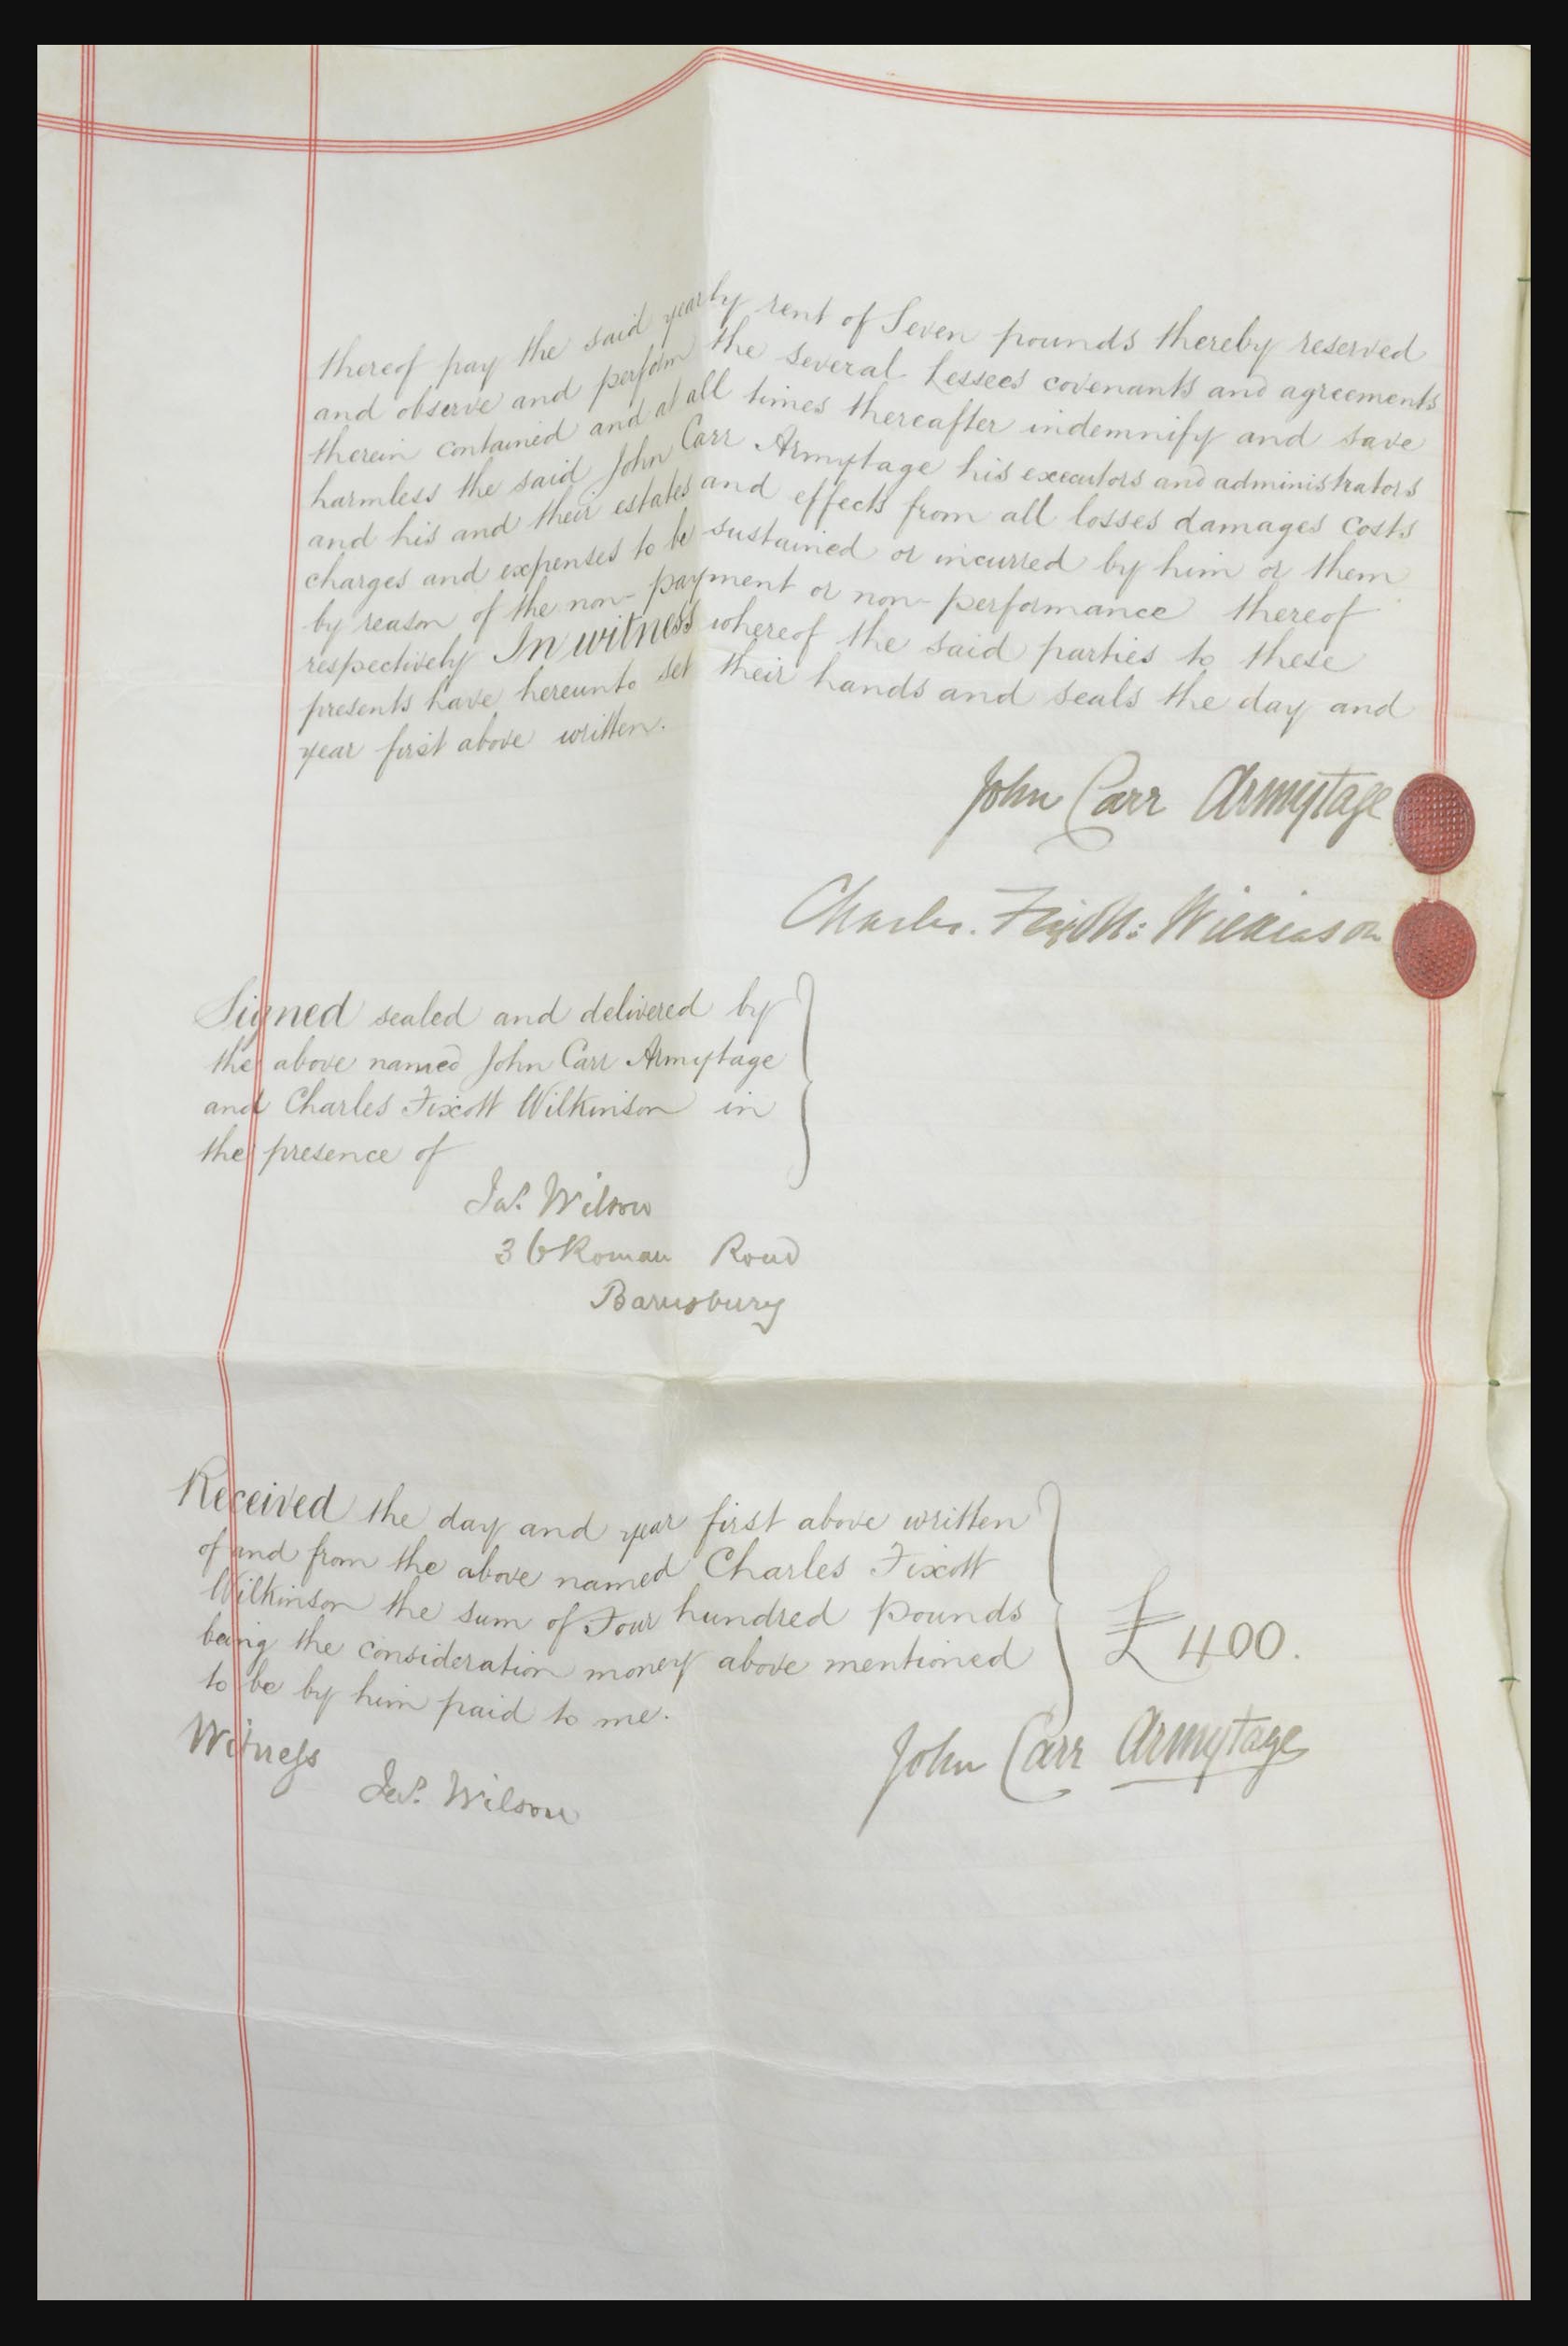 thereof pay the said yearly rent of Seven pounds thereby reserved
and observe and perform the several Lessees covenants and agreements
therein contained and at all times thereafter indemnify and save
harmless the said John Carr Armytage his executors and administrators
and his and their estates and effects from all losses damages costs
charges and expenses to be sustained or incurred by him or them
by reason of the non-payment or non-performance thereof
respectively In witness whereof the said parties to these
presents have hereunto set their hands and seals the day and
year first above written.
John Carr Armytage
Charles. Fixott: Wilkinson
Signed sealed and delivered by
the above named John Carr Armytage
and Charles Fixott Wilkinson in
the presence of
Jas. Wilson
36 Roman Road
Barnsbury
Received the day and year first above written
of and from the above named Charles Fixott
Wilkinson the sum of Four hundred pounds
being the consideration money above mentioned
to be by him paid to me.
£400.
John Carr Armytage
Witness
Jas. Wilson